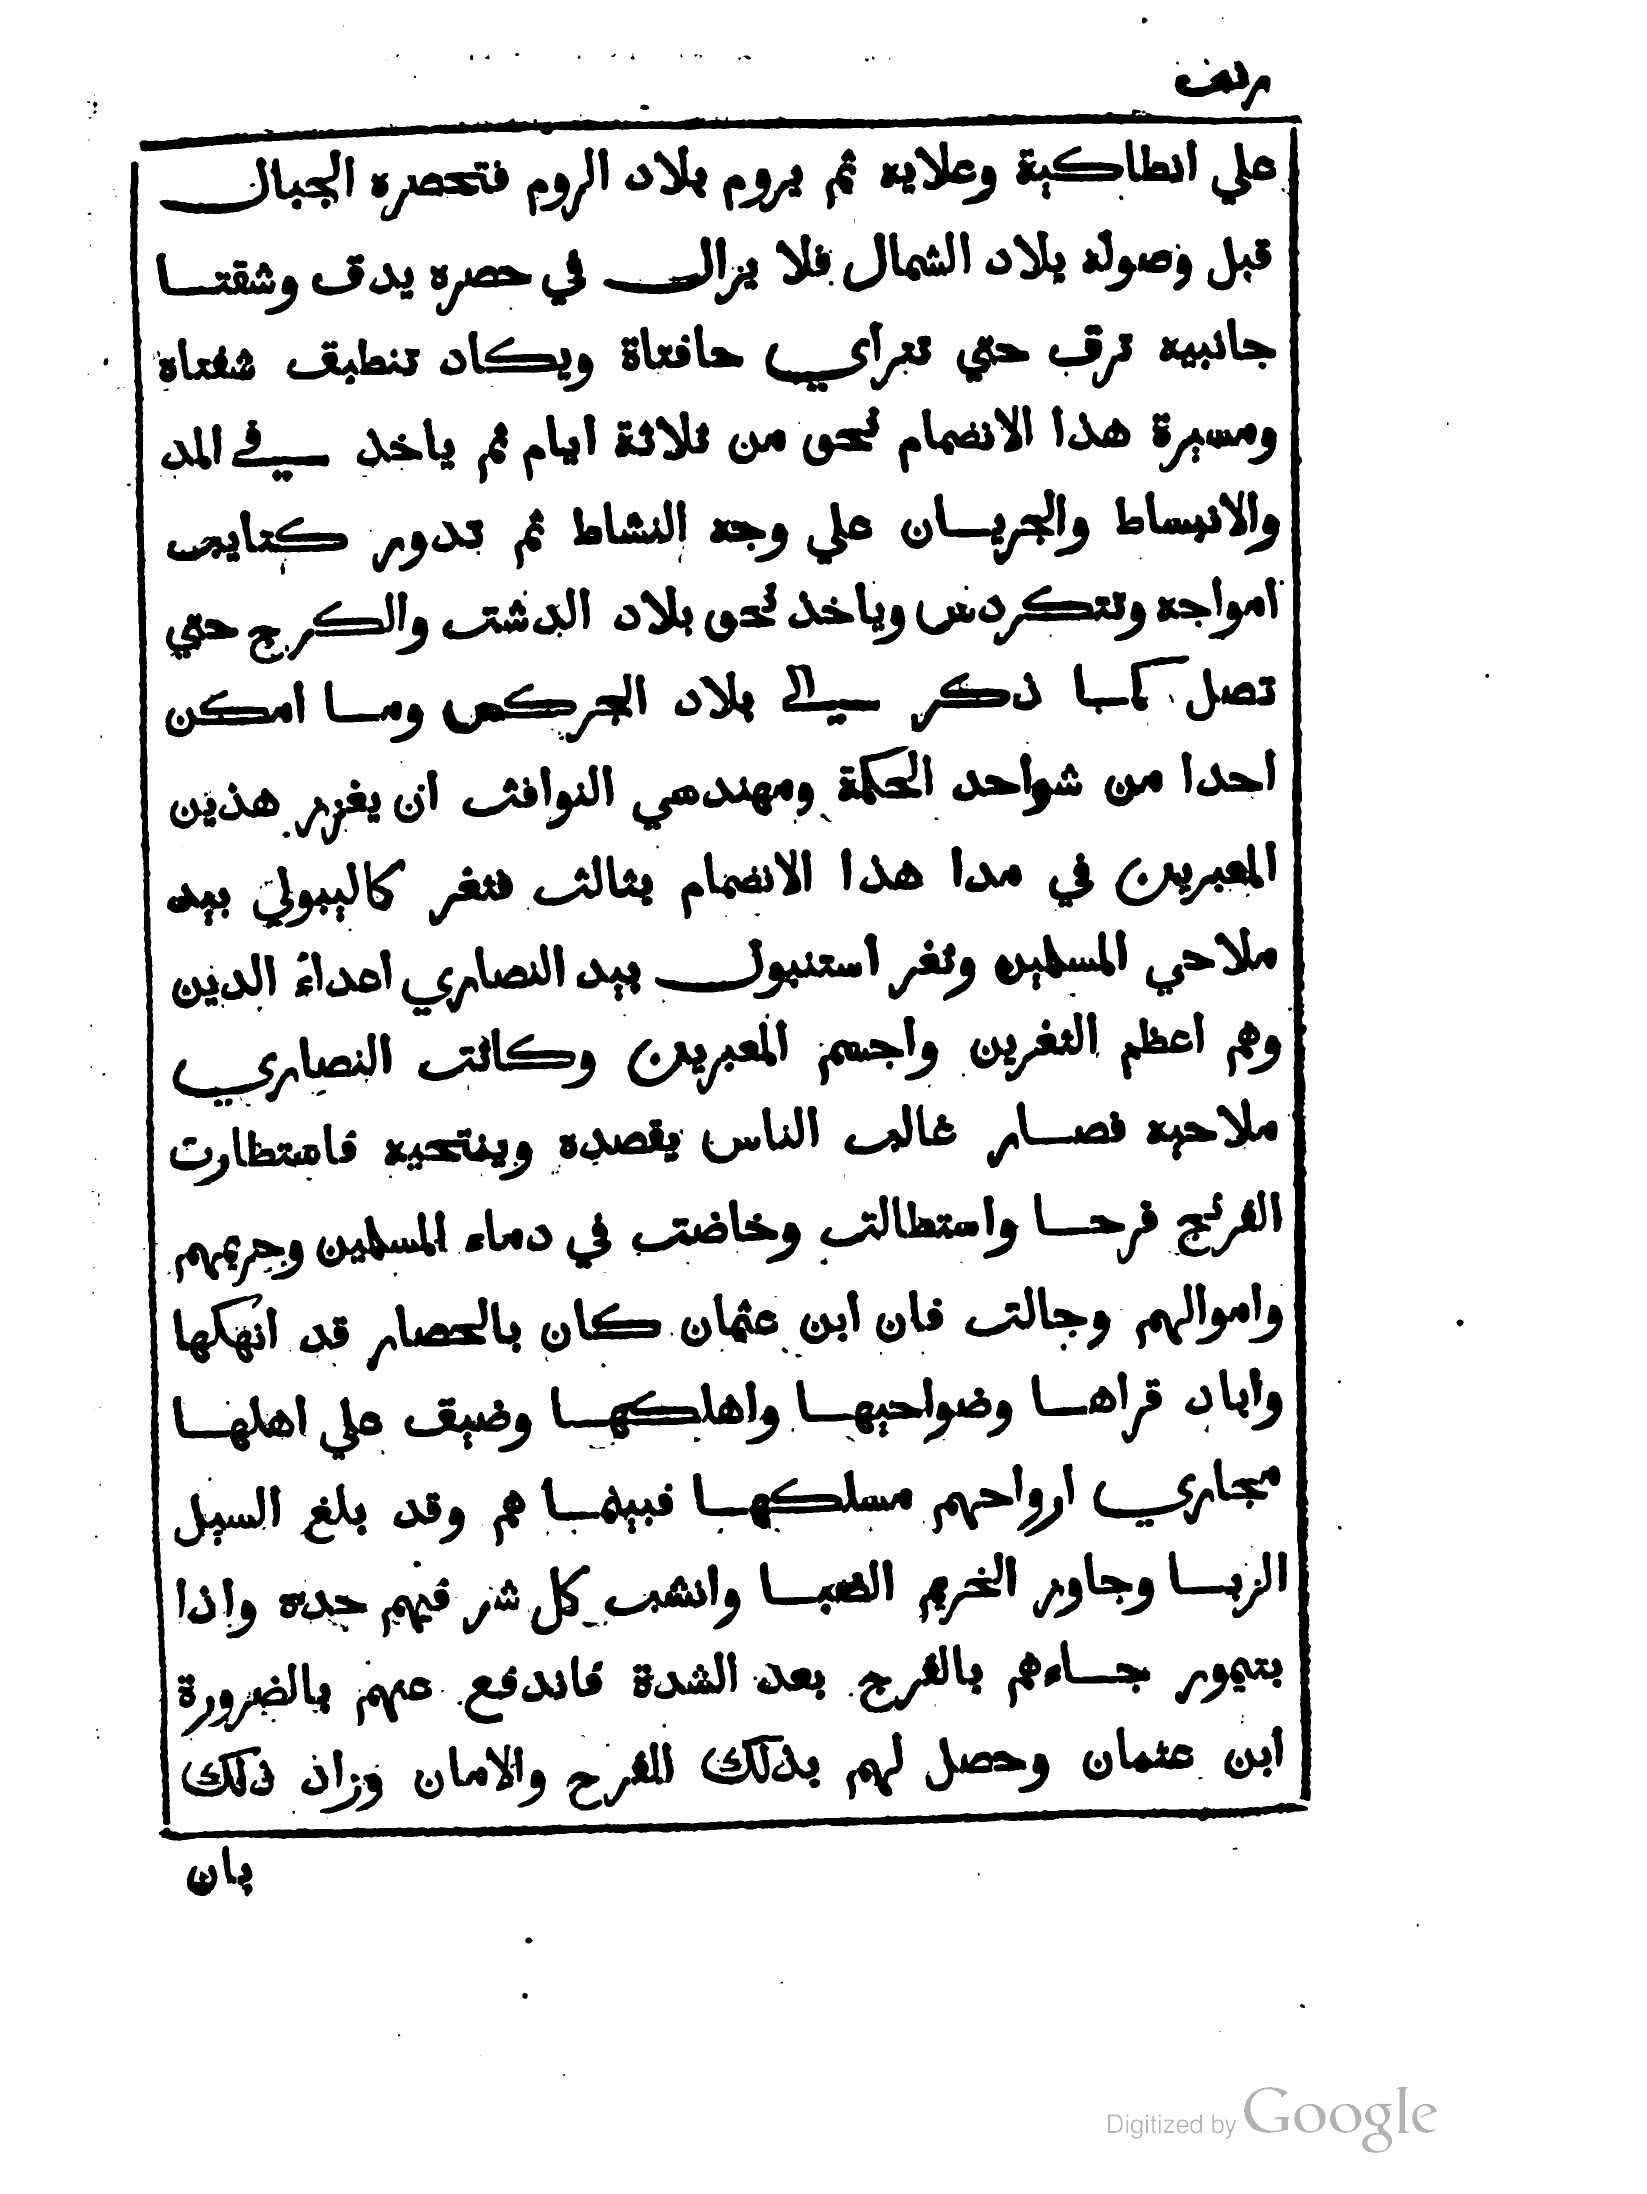 علي انطاكية وعلايه ثم يروم بلاد الروم فتحصره الجبال
قبل وصوله بلاد الشمال فلا يزال في حصره يدق وشقتا
جانبيه ترق حتي تتراي حافتاة ويكاد تنطبق شفتاة
ومسيرة هذا الانضمام نحو من ثلاثة ايام ثم ياخذ في المد
والانبساط والجريان علي وجه النشاط ثم تدور كتايب
امواجه وتتكردس وياخذ نحو بلاد الدشت والكرج حتي
تصل كما ذكر الي بلاد الجركس وما امكن
احدا من شواحد الحكمة ومهندسي النوافث ان يغزر هذين
المعبرين في مدا هذا الانضمام بثالث فثغر كاليبولي بيد
ملاحي المسلمين وثغر استنبول بيد النصاري اعداء الدين
وهم اعظم الثغرين واجسم المعبرين وكانت النصاري
ملاحيه فصار غالب الناس يقصده وينتحيه فاستطارت
الفرنج فرحا واستطالت وخاضت في دماء المسلمين وحريمهم
واموالهم وجالت فان ابن عثمان كان بالحصار قد انهكها
واباد قراها وضواحيها واهلكها وضيق علي اهلها
مجاري ارواحهم مسلكها فبينما هم وقد بلغ السيل
الزبا وجاوز الخريم الضبا وانشب كل شر فيهم حده واذا
بتيمور جاءهم بالفرج بعد الشدة فاندفع عنهم بالضرورة
ابن عثمان وحصل لهم بذلك الفرح والامان وزاد ذلك
بان
Digitized by Google